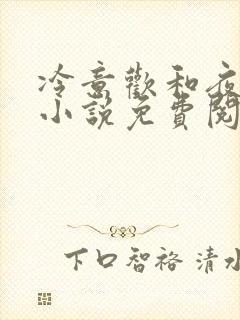 冷意歡和夜
小說免費閱
下口智裕 清水